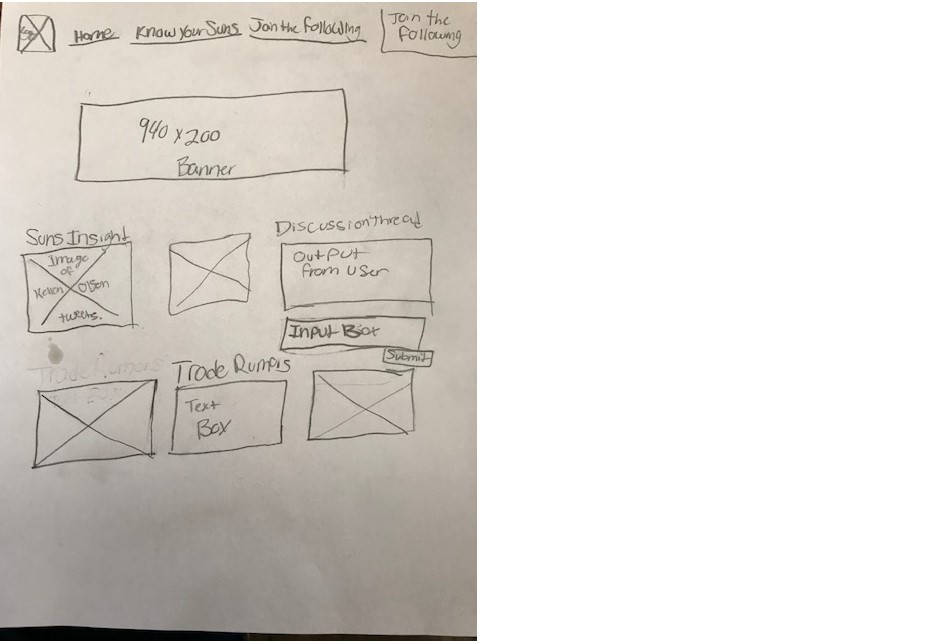 Logo
Home
Know Your Suns
Join the Following
Join the
Following
940 x 200
Banner
Suns Insight
Image
of
Kellan Olson
tweets.
Discussion thread
Output
from user
Input Box
Submit
Trade Rumors
Trade Rumors
Text
Box